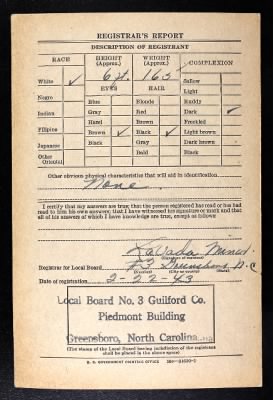 REGISTRAR'S REPORT
DESCRIPTION OF REGISTRANT
RACE HEIGHT (Approx.) WEIGHT (Approx.) COMPLEXION
6 ft. 165
White ✓ Sallow
EYES HAIR Light
Negro Blue Blonde Ruddy
Indian Gray Red Dark ✓
Hazel Brown Freckled
Filipino Brown ✓ Black ✓ Light brown
Japanese Black Gray Dark brown
Other Oriental Bald Black
Other obvious physical characteristics that will aid in identification
None.
I certify that my answers are true; that the person registered has read or has had
read to him his own answers; that I have witnessed his signature or mark and that
all of his answers of which I have knowledge are true, except as follows:
(Signature of registrar)
Registrar for Local Board #3 Greensboro N.C.
(Number) (City or county) (State)
Date of registration 2-22-43
Local Board No. 3 Guilford Co.
Piedmont Building
Greensboro, North Carolina
(The stamp of the Local Board having jurisdiction of the registrant
shall be placed in the above space)
U. S. GOVERNMENT PRINTING OFFICE